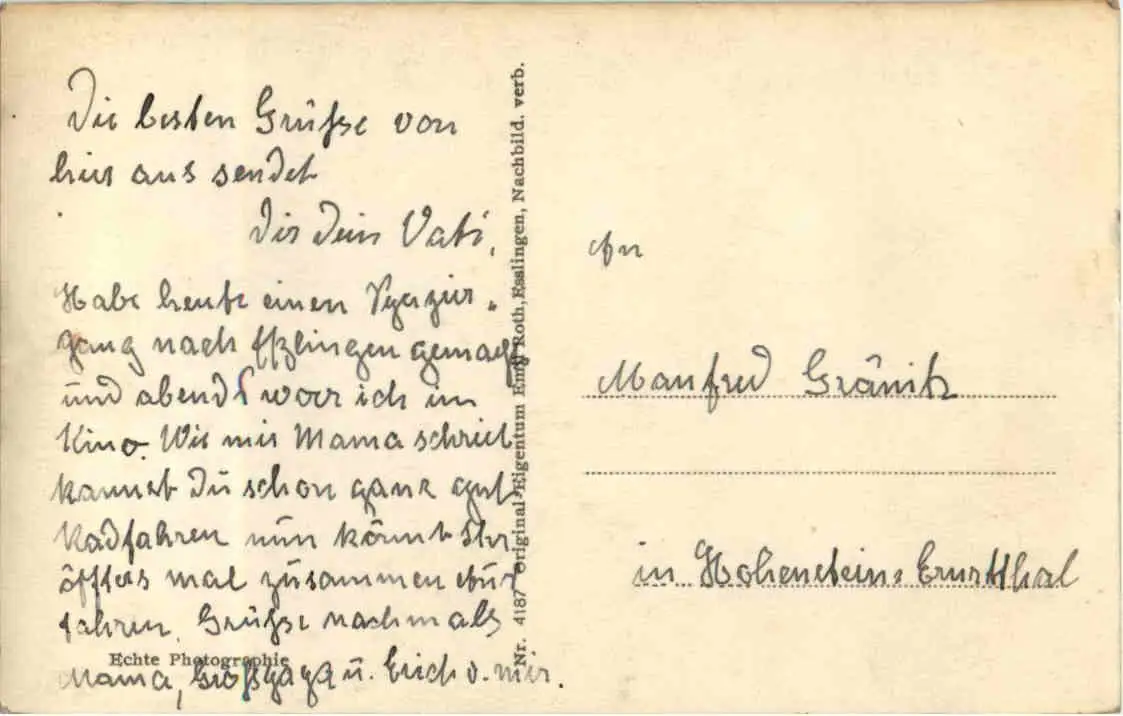 Die besten Grüsse von
hier aus sendet
Dir Dein Vati,
Habe heute einen Spazier-
gang nach Eßlingen gemacht
und abends war ich im
Kino. Wie mir Mama schrieb
kannst Du schon ganz gut
Radfahren nun könnt Ihr
öffters mal zusammen
fahren. Grüsse nochmals
Mama, u. Erich v. mir.
Echte Photographie
Nr. 4187 Original-Eigentum Emil Roth, Esslingen, Nachbild. verb.
An
Manfred Gränitz
in Hohenstein-Ernstthal